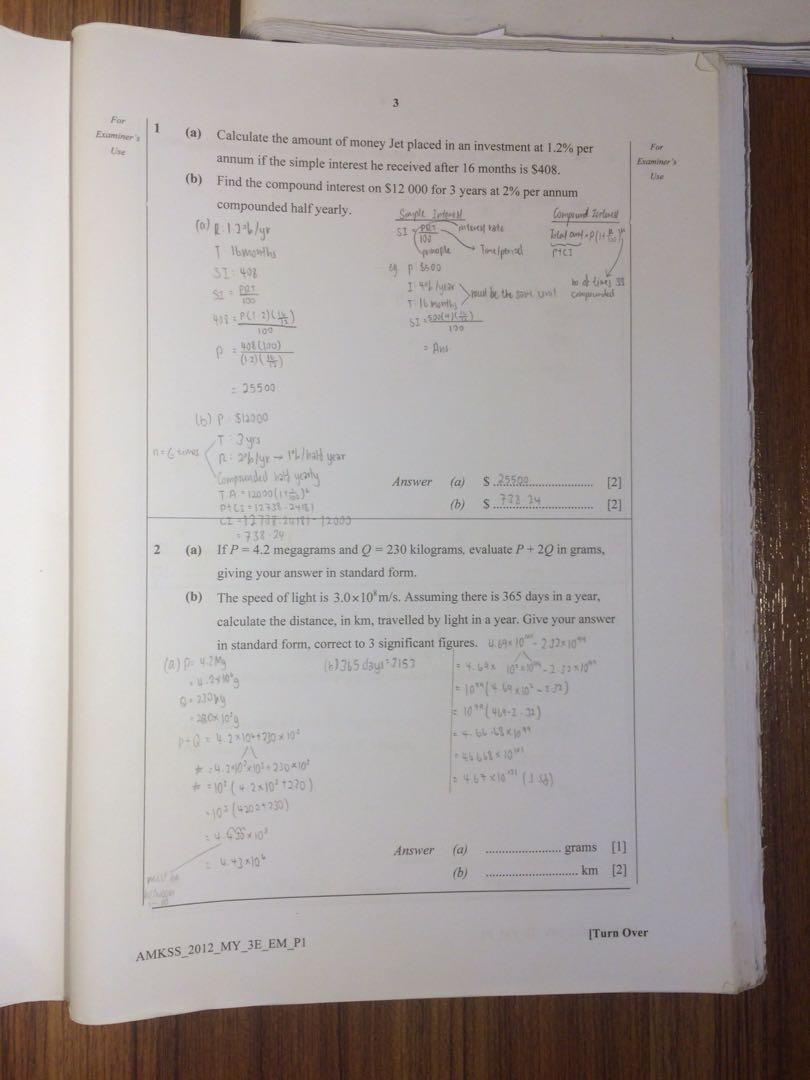 3
For
Examiner's
Use
For
Examiner's
Use
1 (a) Calculate the amount of money Jet placed in an investment at 1.2% per
annum if the simple interest he received after 16 months is $408.
(b) Find the compound interest on $12 000 for 3 years at 2% per annum
compounded half yearly.
(a) R 1.2%/yr
T 16 months
SI: 408
SI = PRT/100
408 = P(1.2)(16/12)/100
P = 408(100)/(1.2)(16/12)
= 25500
Simple Interest
SI = PRT/100
interest rate
principle
Time/period
eg P $500
I 4%/year
T 16 months
must be the same unit
SI = 500(4)(16/12)/100
= Ans
Compound Interest
Total amt = P(1+R/100)^n
P+CI
no of times
compounded
(b) P $12000
T 3 yrs
n = 6 times
R: 2%/yr → 1%/half year
Compounded half yearly
T A = 12000(1+1/100)^6
P+CI = 12738.24181
CI = 12738.24181 - 12000
= 738.24
Answer (a) $ 25500 [2]
(b) $ 738.24 [2]
2 (a) If P = 4.2 megagrams and Q = 230 kilograms, evaluate P + 2Q in grams,
giving your answer in standard form.
(b) The speed of light is 3.0×10⁸ m/s. Assuming there is 365 days in a year,
calculate the distance, in km, travelled by light in a year. Give your answer
in standard form, correct to 3 significant figures.
(a) P = 4.2Mg
= 4.2×10⁶g
Q = 230kg
= 230×10³g
P+Q = 4.2×10⁶+230×10³
* = 4.2×10³×10³+230×10³
* = 10³(4.2×10³+230)
= 10³(4200+230)
= 4.43×10⁶
must be
between
(b) 365 days =
4.69×10¹⁰¹ - 2.32×10⁹⁹
= 4.69× 10²×10⁹⁹ - 2.32×10⁹⁹
= 10⁹⁹(4.69×10² - 2.32)
= 10⁹⁹(469-2.32)
= 4.67×10¹⁰¹ (3.sf)
Answer (a) ...................... grams [1]
(b) ........................... km [2]
AMKSS_2012_MY_3E_EM_P1
[Turn Over